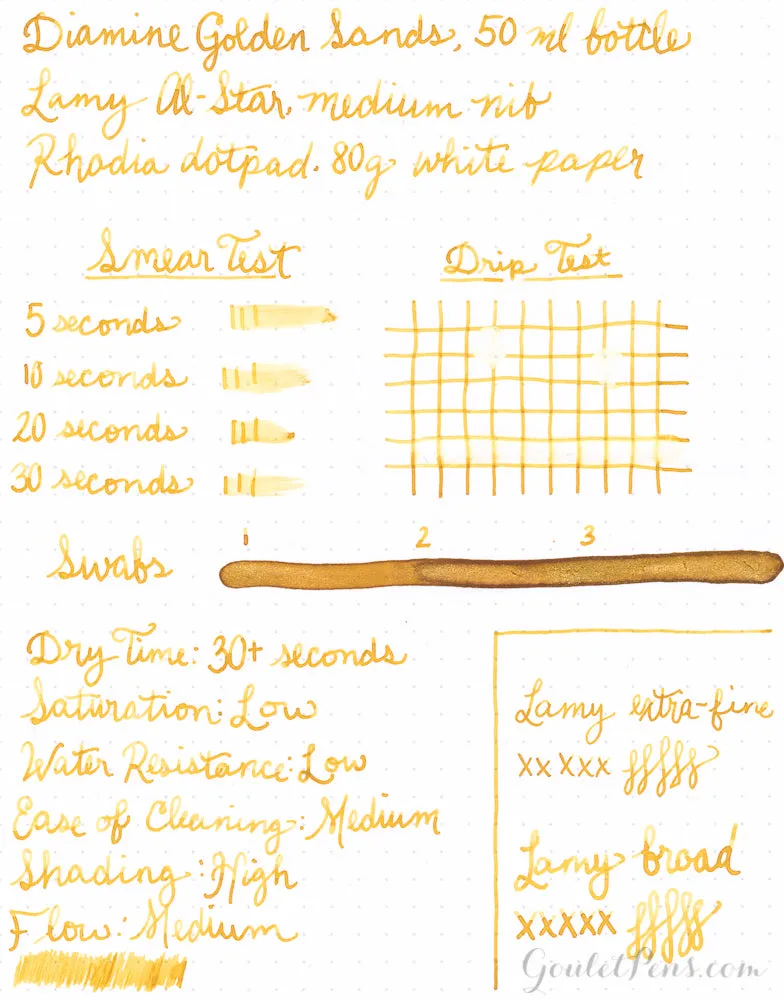 Diamine Golden Sands, 50 ml bottle
Lamy Al-Star, medium nib
Rhodia dotpad. 80g white paper
Smear Test
Drip Test
5 seconds
10 seconds
20 seconds
30 seconds
1 2 3
Swabs
Dry Time: 30+ seconds
Saturation: Low
Water Resistance: Low
Ease of Cleaning: Medium
Shading: High
Flow: Medium
Lamy extra-fine
xxxxx fffff
Lamy broad
xxxxx fffff
GouletPens.com